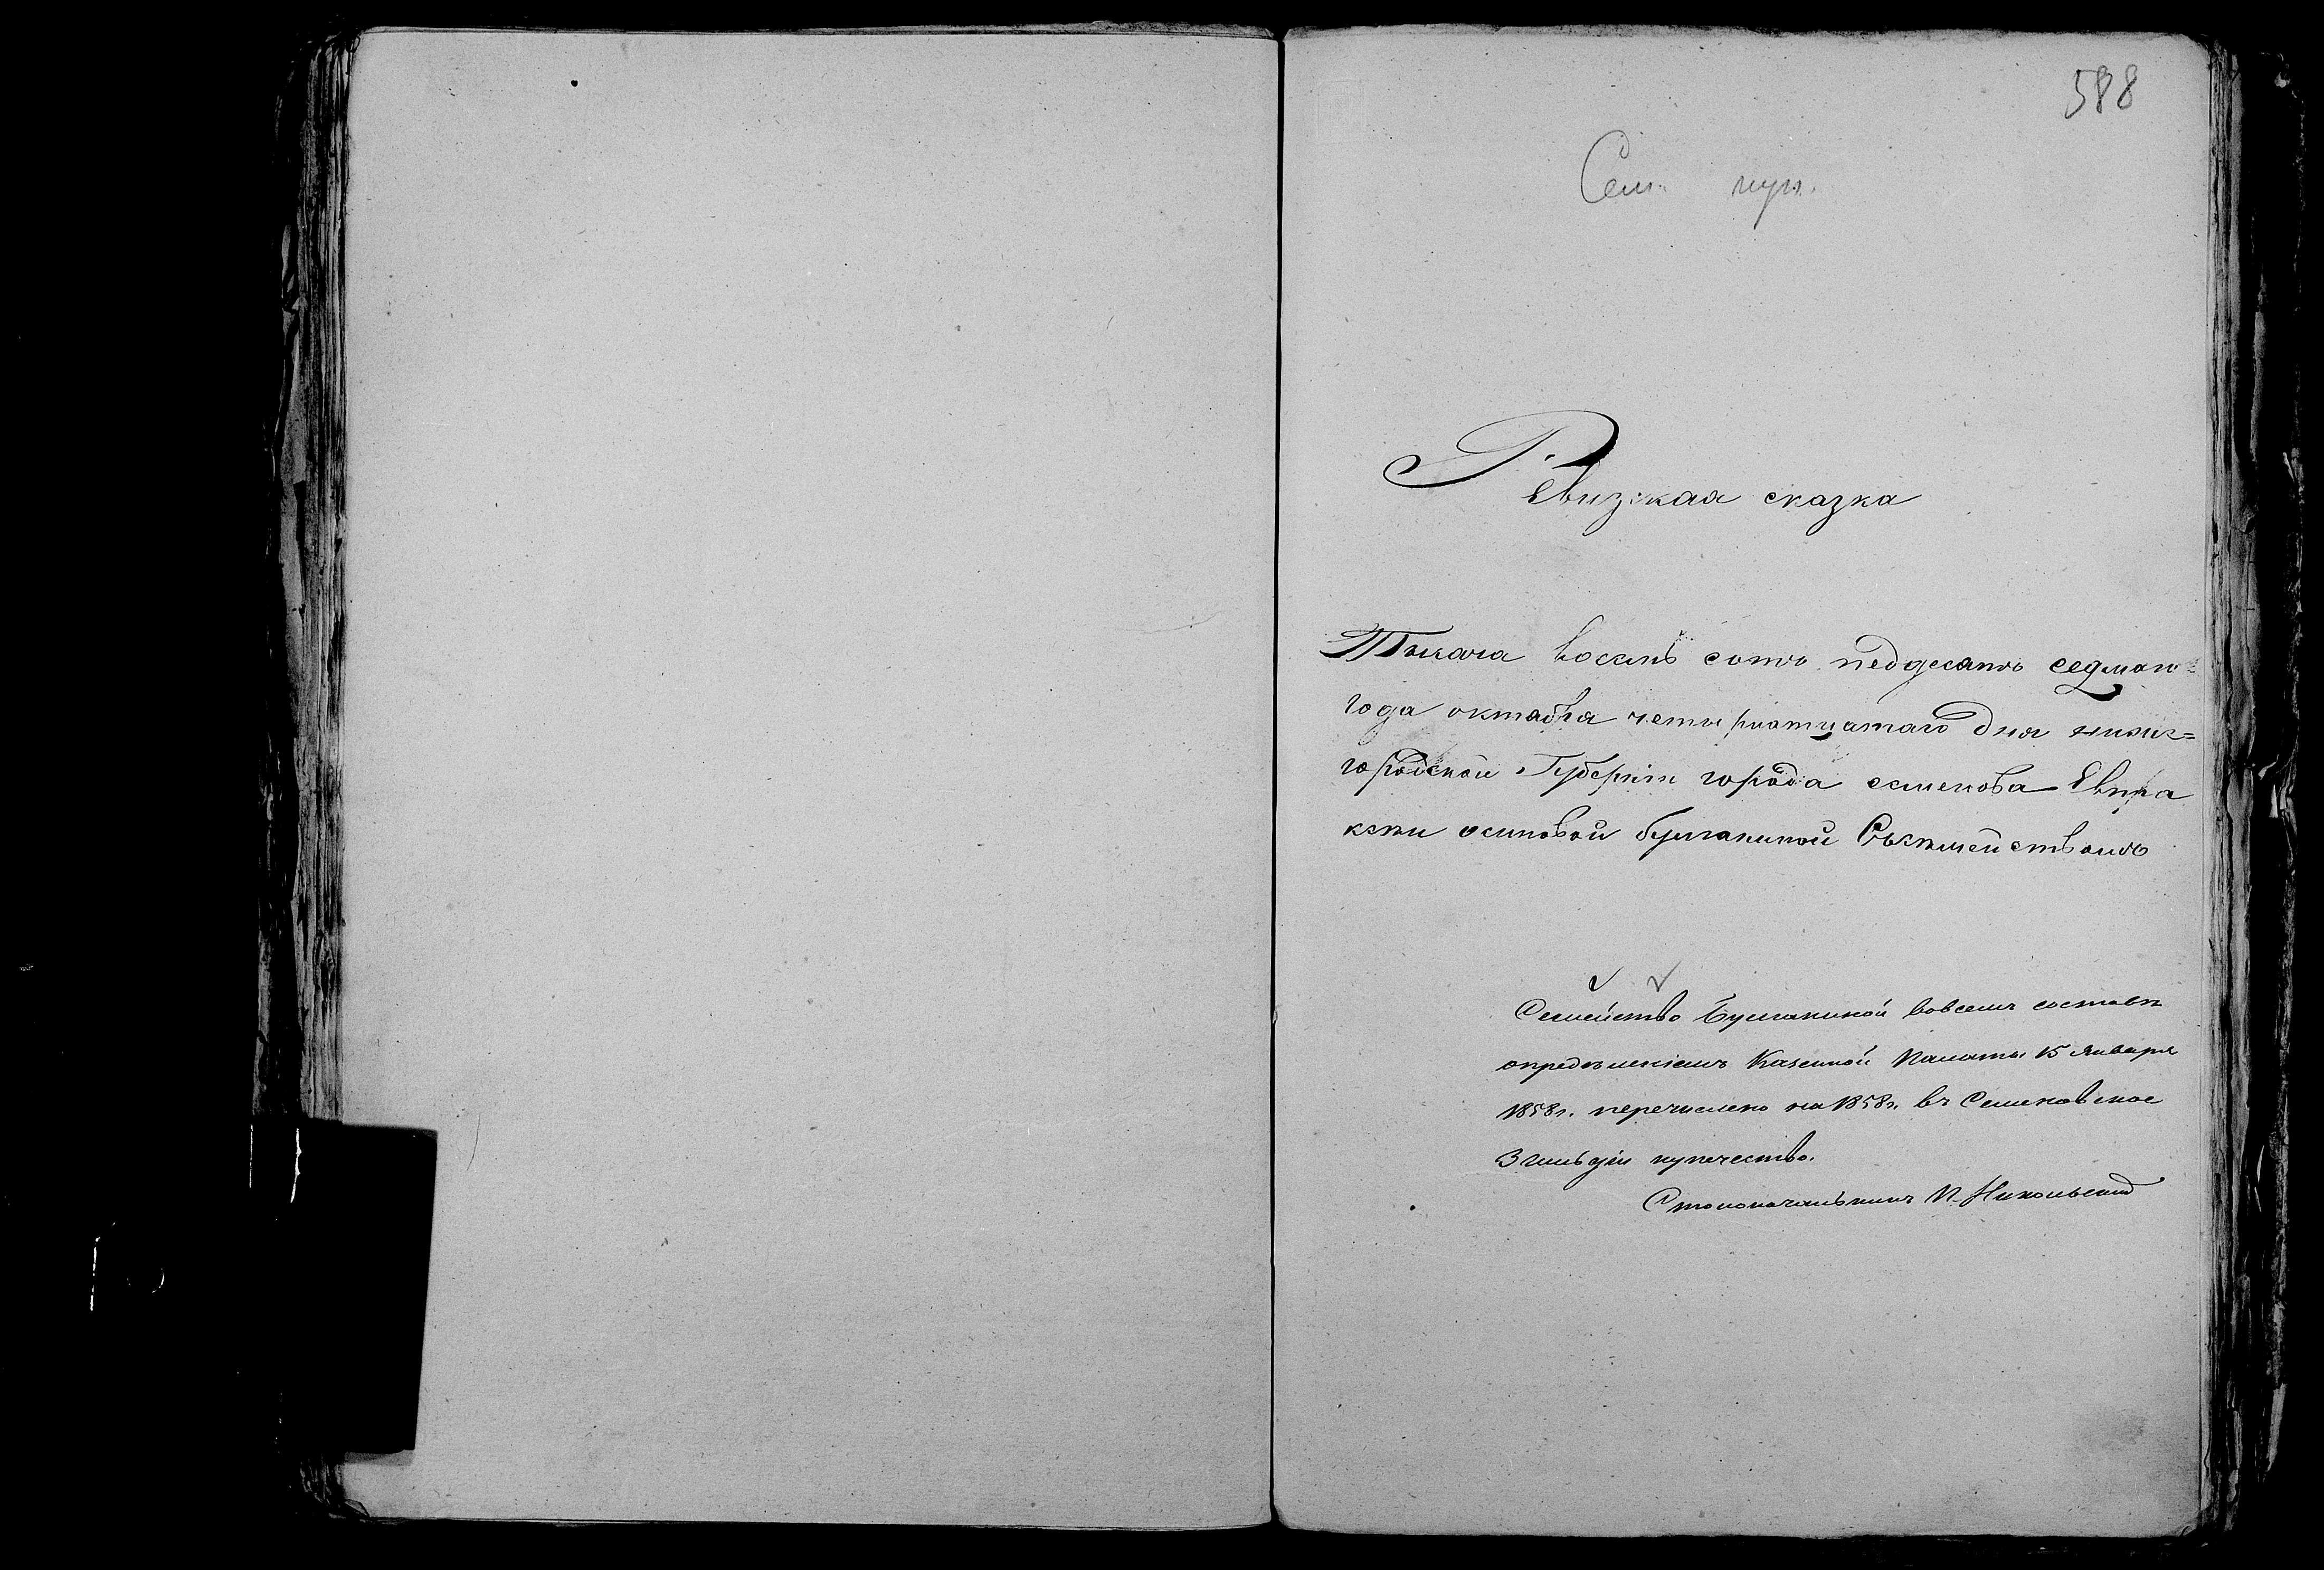 588
Сем. куп.
Ревизская сказка
Тысяча восемь сотъ педдесятъ седмаго
года октября четырнатцатаго дня нижне=
городской Губерніи города семенова Евпра
ксѣи осиповой булганиной Съсѣмействомъ
Семейство Булганиной вовсемъ составѣ
опредѣленіемъ Казенной Палаты 15 Января
1858г. перечислено на 1858г. въ Семеновское
3 гильдіи купечество.
Столоначальникъ П. Никольскій